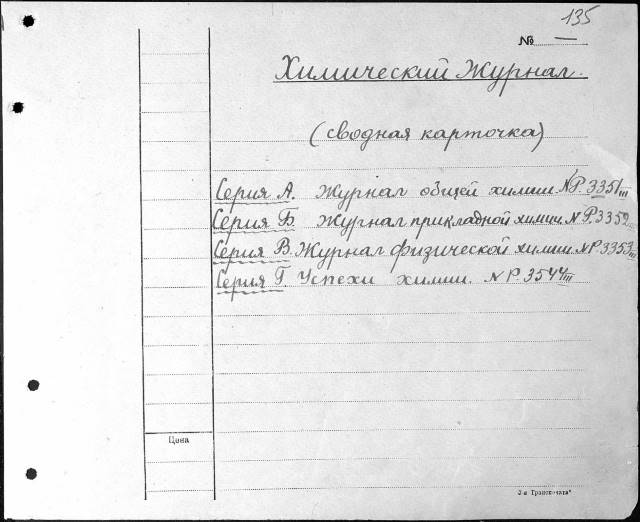 135
№ —
Химический Журнал.
(сводная карточка)
Серия А. Журнал общей химии. №Р.3351 III
Серия Б. Журнал прикладной химии №Р.3352 III
Серия В. Журнал физической химии. №Р.3353 III
Серия Г. Успехи химии. №Р.3544 III
Цена